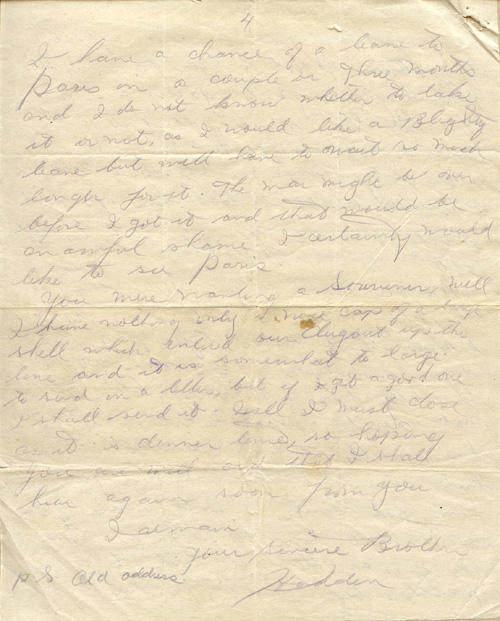 4
I have a chance of a leave to
Paris in a couple or three months
and I do not know whether to take
it or not, as I would like a Blighty
leave but will have to wait so much
longer for it. The war might be over
before I got it and that would be
an awful shame I certainly would
like to see Paris
You were wanting a Souvenir, well
I have nothing only a nose cap of a
shell which entered our dugout up the
line and it is somewhat to large
to send in a letter, but if I get a good one
I shall send it. Well I must close
as it is dinner time, so hoping
you are well and that I shall
hear again soon from you
I remain
Your sincere Brother
P.S. Old address